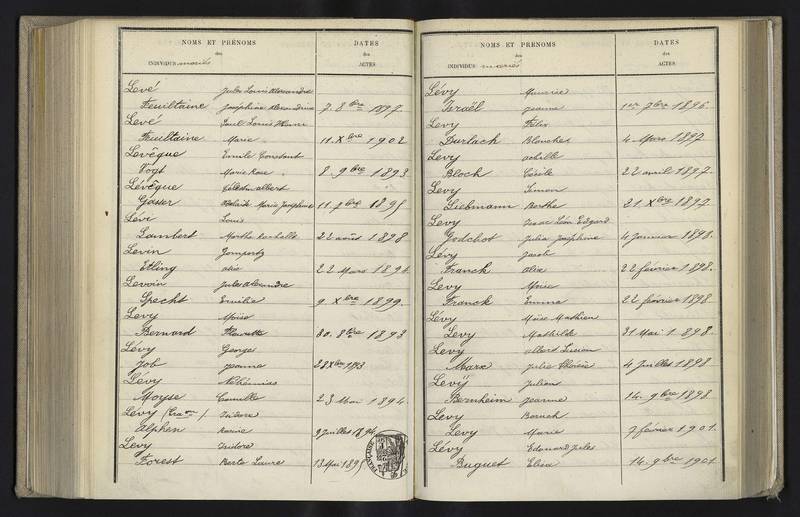 NOMS ET PRÉNOMS
des
INDIVIDUS mariés
DATES
des
ACTES
Levé Jules Louis Alexandre
Feuiltaine Joséphine Alexandrine 7. 8bre 1897.
Levé Paul Louis Henri
Feuiltaine Marie 11. Xbre 1902
Levêque Emile Constant
Vogt Marie Rose 8. 9bre 1893.
Lévêque Célestin Albert
Gasser Marie Joséphine 11. 7bre 1895
Lévi Louis
Lambert Marthe 22 août 1898
Levin Gompertz
Etling 22 Mars 1894.
Levoin Jules Alexandre
Specht Emilie 9. Xbre 1899.
Levy Moïse
Bernard Fleurette 30. 8bre 1893
Lévy George
Job Jeanne 28 Xbre 1893
Lévy Néhémias
Moyse Camille 23 Mai 1894.
Lévy Isidore
Alphen 9 Juillet 1894
Levy Isidore
Forest Berte Laure 13 Mai 1895
NOMS ET PRÉNOMS
des
INDIVIDUS mariés
DATES
des
ACTES
Lévy Maurice
Israël Jeanne 1er 7bre 1896.
Levy Félix
Durlach Blanche 4 Mars 1897
Levy Achille
Bloch Cécile 22 avril 1897.
Levy Simon
Liebmann Berthe 21. Xbre 1897.
Levy Isaac Léon Edgard
Godchot Julie Joséphine 4 Janvier 1898.
Lévy Jacob
Franck Alice 22 février 1898.
Levy Moïse
Franck Emma 22 février 1898
Lévy Moïse Mathieu
Levy Mathilde 31 Mai 1.898.
Levy Albert Lucien
Marx Julie 4 Juillet 1898
Levÿ Julien
Bernheim Jeanne 14. 9bre 1898.
Levy Baruch
Levy Marie 7 février 1901.
Lévy Edouard Jules
Buguet Elisa 14. 9bre 1901.